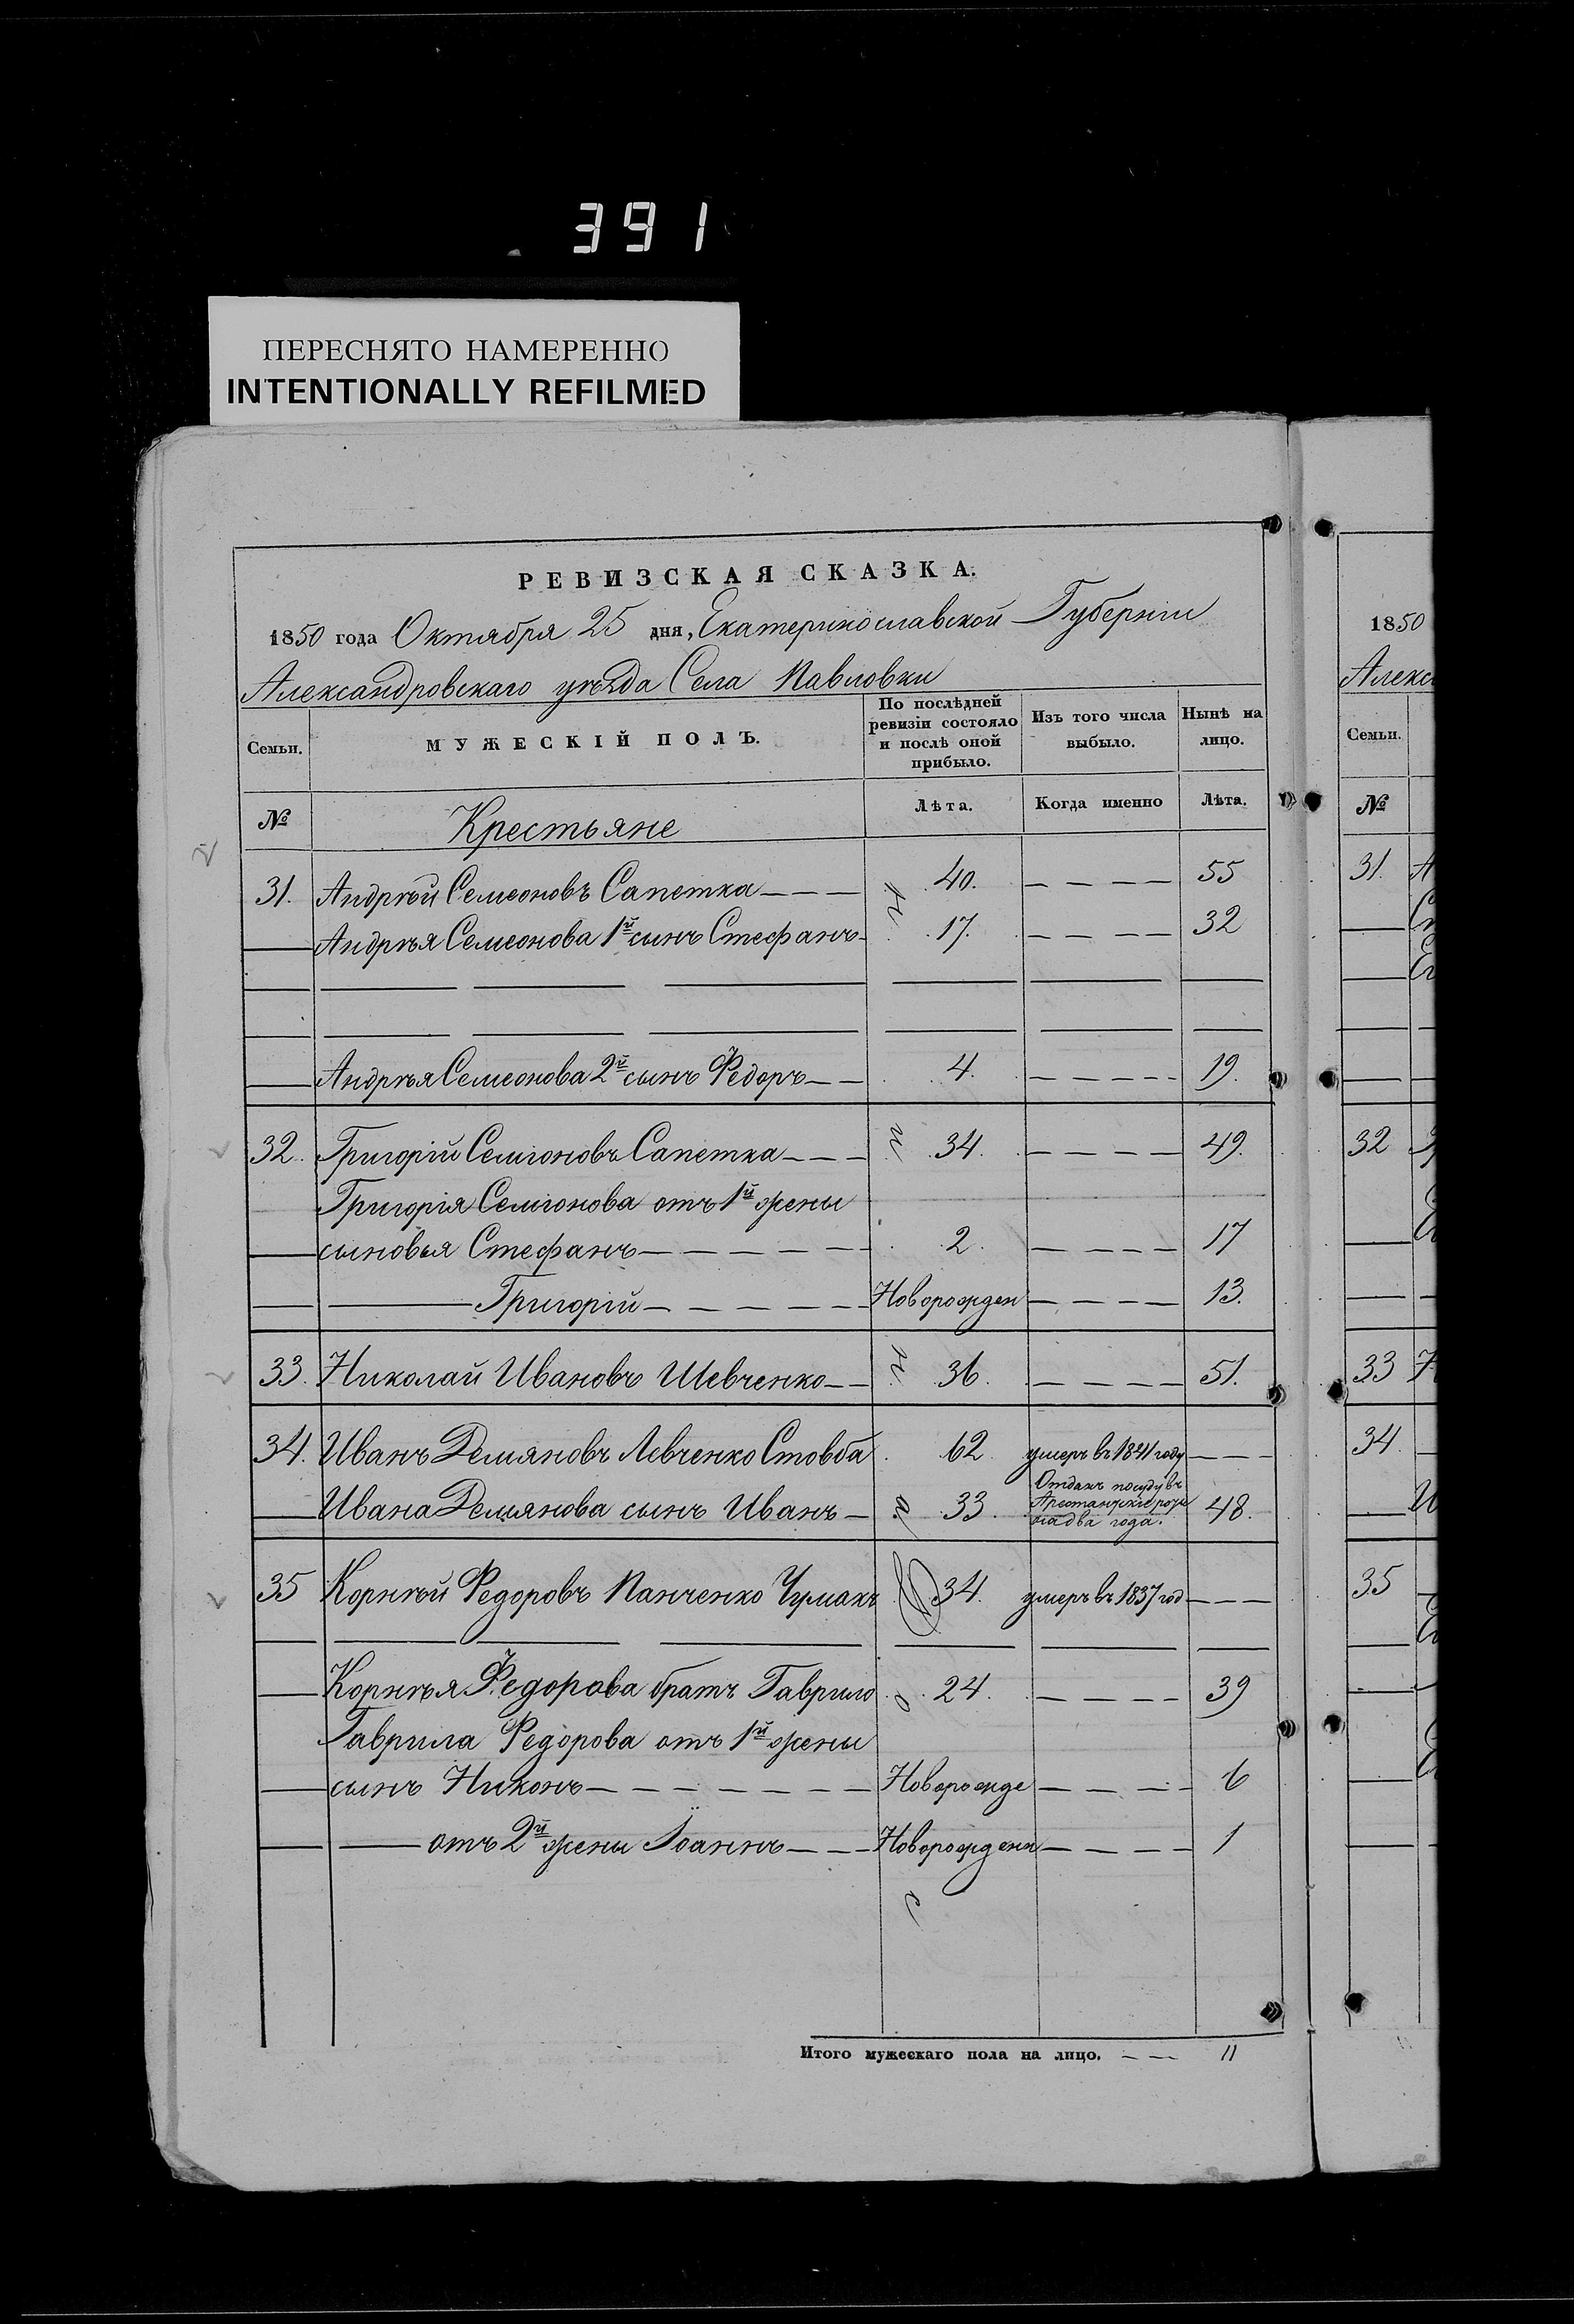 391
ПЕРЕСНЯТО НАМЕРЕННО
INTENTIONALLY REFILMED
РЕВИЗСКАЯ СКАЗКА.
1850 года Октября 25 дня, Екатеринославской Губерніи
Александровскаго уѣзда Села Павловки
Семьи. МУЖЕСКІЙ ПОЛЪ. По послѣдней ревизіи состояло и послѣ оной прибыло. Изъ того числа выбыло. Нынѣ на лицо.
№ Крестьяне Лѣта. Когда именно Лѣта.
31. Андрѣй Семеоновъ Сапетка — — — 40. — — — — 55
Андрѣя Семеонова 1й сынъ Стефанъ 17. — — — — 32
Андрѣя Семеонова 2й сынъ Федоръ — — 4. — — — — 19.
32. Григорій Семіоновъ Сапетка — — — 34. — — — — 49.
Григорія Семіонова отъ 1й жены
сыновья Стефанъ — — — — — 2. — — — — 17
Григорій — — — — — Новорожден — — — — 13.
33. Николай Ивановъ Шевченко — — 36. — — — — 51.
34. Иванъ Демяновъ Левченко Стовба 62 умеръ въ 1841 году — — —
Ивана Демянова сынъ Иванъ — 33. Отданъ посуду въ Арестанскіе роты на два года. 48.
35 Корнѣй Федоровъ Панченко Чумакъ 34. умеръ въ 1837 год — — —
Корнѣя Федорова братъ Гаврило 24. — — — — 39
Гаврила Федорова отъ 1й жены
сынъ Никонъ — — — — — — Новорожде — — — — 6
отъ 2й жены Іоаннъ — — — Новорожденн — — — — 1
Итого мужескаго пола на лицо. — — 11
1850
Алекса
Семьи.
№
31.
32
33
34.
35